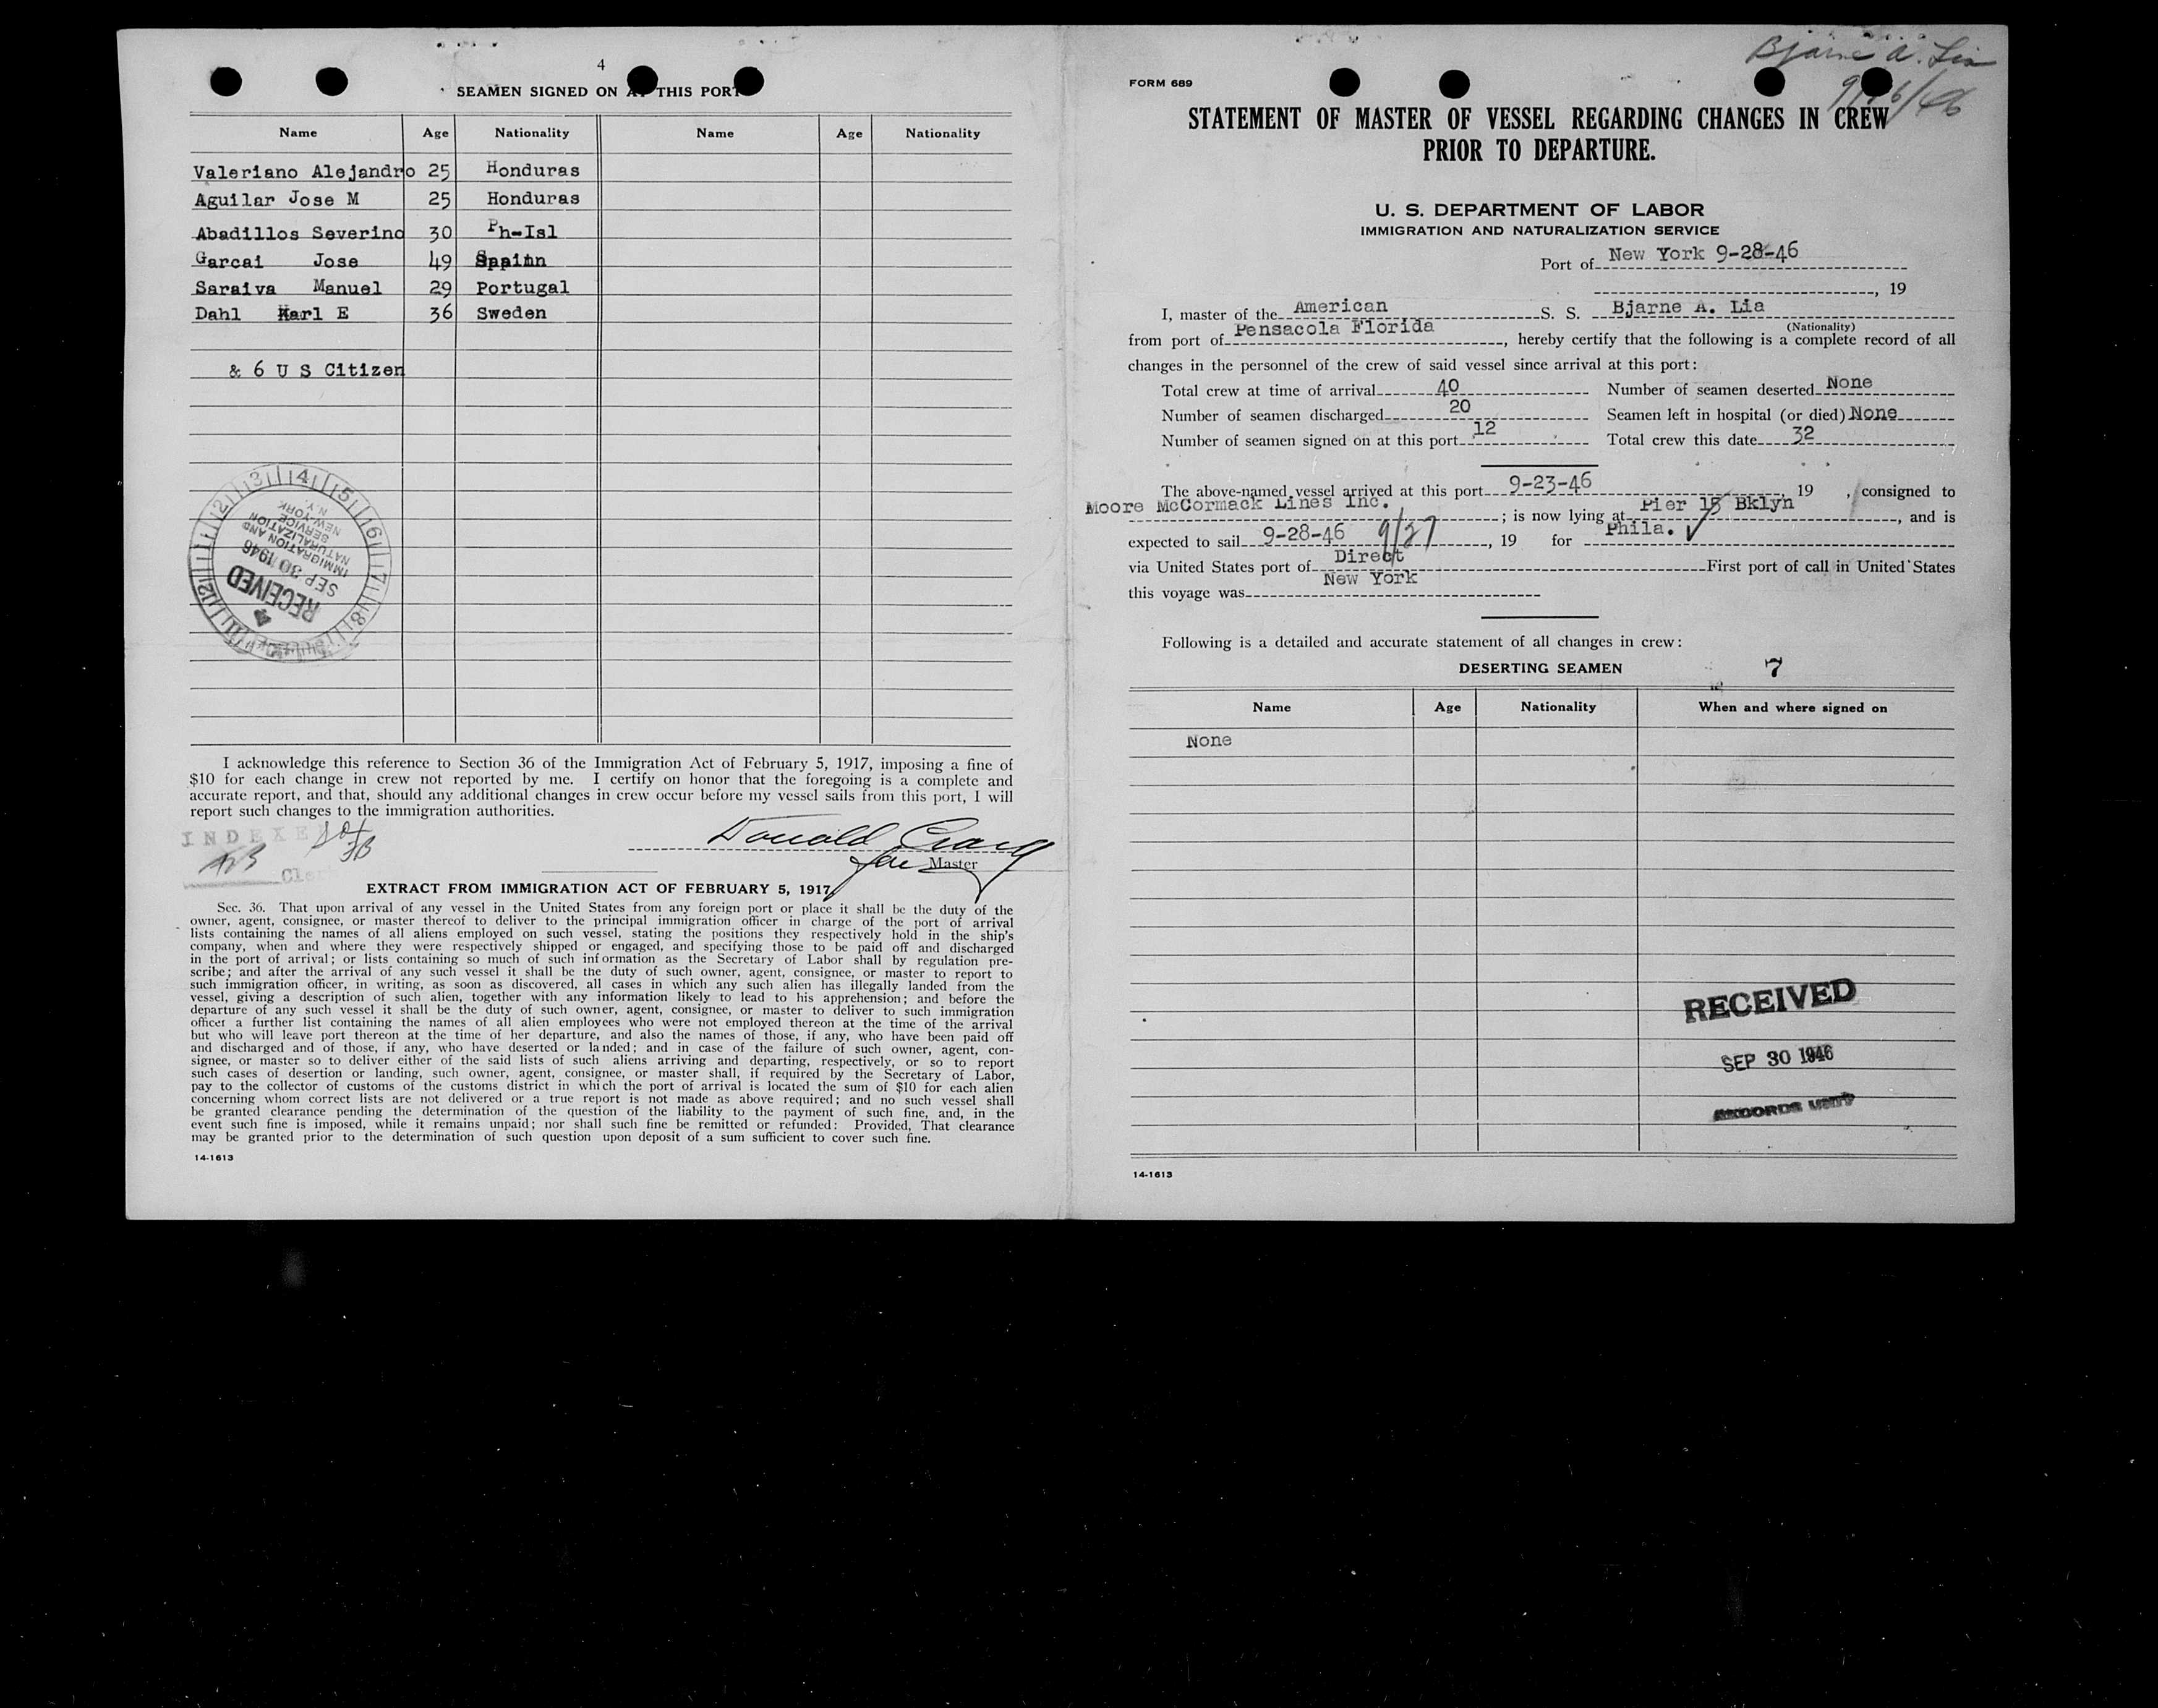 4
SEAMEN SIGNED ON AT THIS PORT
Name Age Nationality Name Age Nationality
Valeriano Alejandro 25 Honduras
Aguilar Jose M 25 Honduras
Abadillos Severino 30 Ph-Isl
Garcai Jose 49 Spain
Saraiva Manuel 29 Portugal
Dahl Karl E 36 Sweden
& 6 U S Citizen
RECEIVED
SEP 30 1946
IMMIGRATION AND
NATURALIZATION
SERVICE
NEW YORK
N.Y.
I acknowledge this reference to Section 36 of the Immigration Act of February 5, 1917, imposing a fine of
$10 for each change in crew not reported by me. I certify on honor that the foregoing is a complete and
accurate report, and that, should any additional changes in crew occur before my vessel sails from this port, I will
report such changes to the immigration authorities.
INDEXE
Donald Craig
for Master
EXTRACT FROM IMMIGRATION ACT OF FEBRUARY 5, 1917
Sec. 36. That upon arrival of any vessel in the United States from any foreign port or place it shall be the duty of the
owner, agent, consignee, or master thereof to deliver to the principal immigration officer in charge of the port of arrival
lists containing the names of all aliens employed on such vessel, stating the positions they respectively hold in the ship's
company, when and where they were respectively shipped or engaged, and specifying those to be paid off and discharged
in the port of arrival; or lists containing so much of such information as the Secretary of Labor shall by regulation pre-
scribe; and after the arrival of any such vessel it shall be the duty of such owner, agent, consignee, or master to report to
such immigration officer, in writing, as soon as discovered, all cases in which any such alien has illegally landed from the
vessel, giving a description of such alien, together with any information likely to lead to his apprehension; and before the
departure of any such vessel it shall be the duty of such owner, agent, consignee, or master to deliver to such immigration
officer a further list containing the names of all alien employees who were not employed thereon at the time of the arrival
but who will leave port thereon at the time of her departure, and also the names of those, if any, who have been paid off
and discharged and of those, if any, who have deserted or landed; and in case of the failure of such owner, agent, con-
signee, or master so to deliver either of the said lists of such aliens arriving and departing, respectively, or so to report
such cases of desertion or landing, such owner, agent, consignee, or master shall, if required by the Secretary of Labor,
pay to the collector of customs of the customs district in which the port of arrival is located the sum of $10 for each alien
concerning whom correct lists are not delivered or a true report is not made as above required; and no such vessel shall
be granted clearance pending the determination of the question of the liability to the payment of such fine, and, in the
event such fine is imposed, while it remains unpaid; nor shall such fine be remitted or refunded: Provided, That clearance
may be granted prior to the determination of such question upon deposit of a sum sufficient to cover such fine.
14-1613
Bjarne A. Lia
FORM 689
STATEMENT OF MASTER OF VESSEL REGARDING CHANGES IN CREW
PRIOR TO DEPARTURE.
U. S. DEPARTMENT OF LABOR
IMMIGRATION AND NATURALIZATION SERVICE
Port of New York 9-28-46
, 19
I, master of the American S. S. Bjarne A. Lia
(Nationality)
from port of Pensacola Florida, hereby certify that the following is a complete record of all
changes in the personnel of the crew of said vessel since arrival at this port:
Total crew at time of arrival 40 Number of seamen deserted None
Number of seamen discharged 20 Seamen left in hospital (or died) None
Number of seamen signed on at this port 12 Total crew this date 32
The above-named vessel arrived at this port 9-23-46, 19 , consigned to
Moore McCormack Lines Inc. ; is now lying at Pier 15 Bklyn, and is
expected to sail 9-28-46 9/27, 19 for Phila. ✓
via United States port of Direct First port of call in United States
this voyage was New York
Following is a detailed and accurate statement of all changes in crew:
DESERTING SEAMEN 7
Name Age Nationality When and where signed on
None
RECEIVED
SEP 30 1946
RECORDS UNIT
14-1613